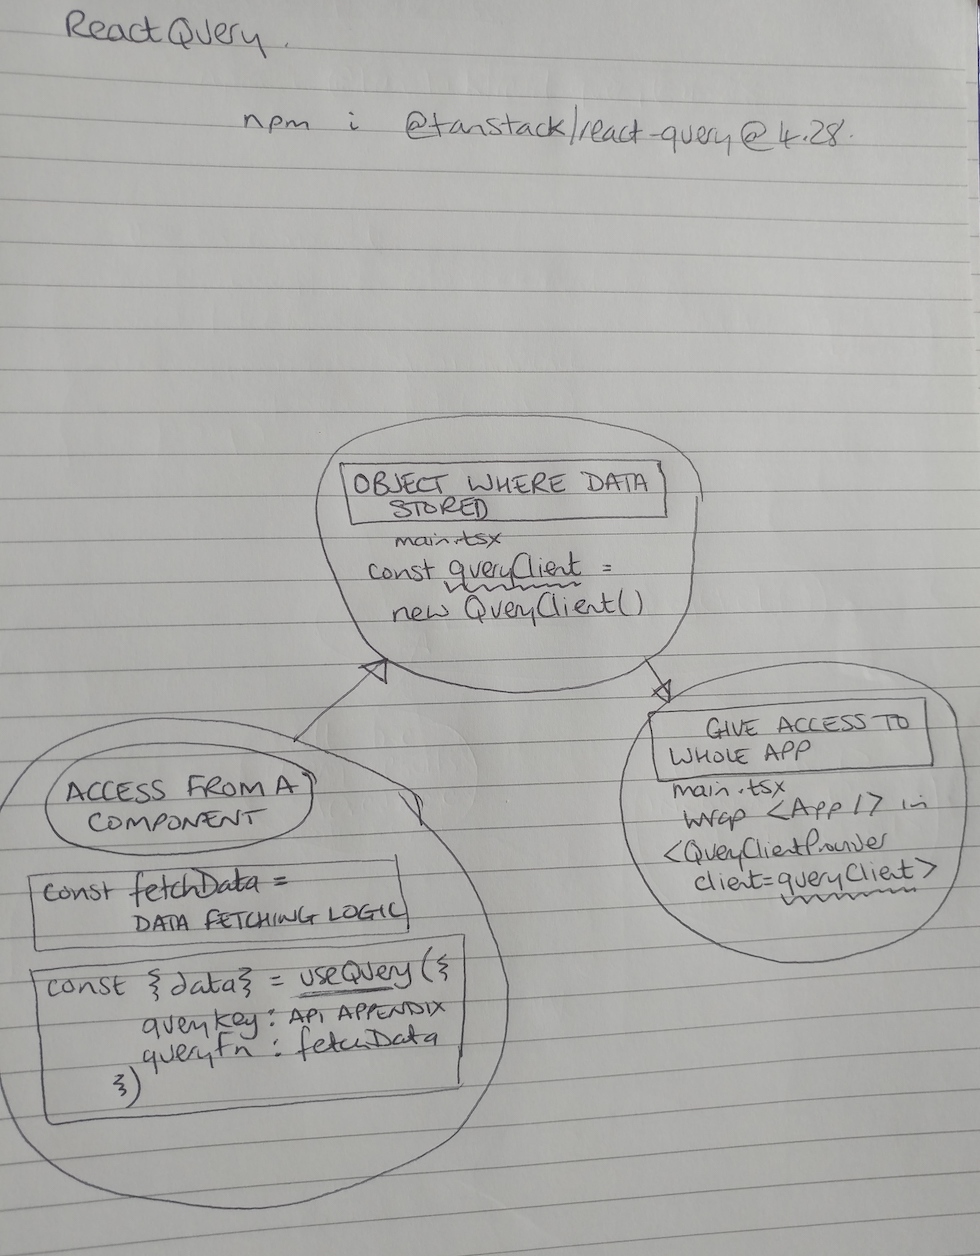 React Query.
npm i @tanstack/react-query@4.28.
OBJECT WHERE DATA
STORED
main.tsx
const queryClient =
new QueryClient()
GIVE ACCESS TO
WHOLE APP
main.tsx
wrap <App /> in
<QueryClientProvider
client=queryClient>
ACCESS FROM A
COMPONENT
const fetchData =
DATA FETCHING LOGIC
const {data} = useQuery({
queryKey: API APPENDIX
queryFn : fetchData
})